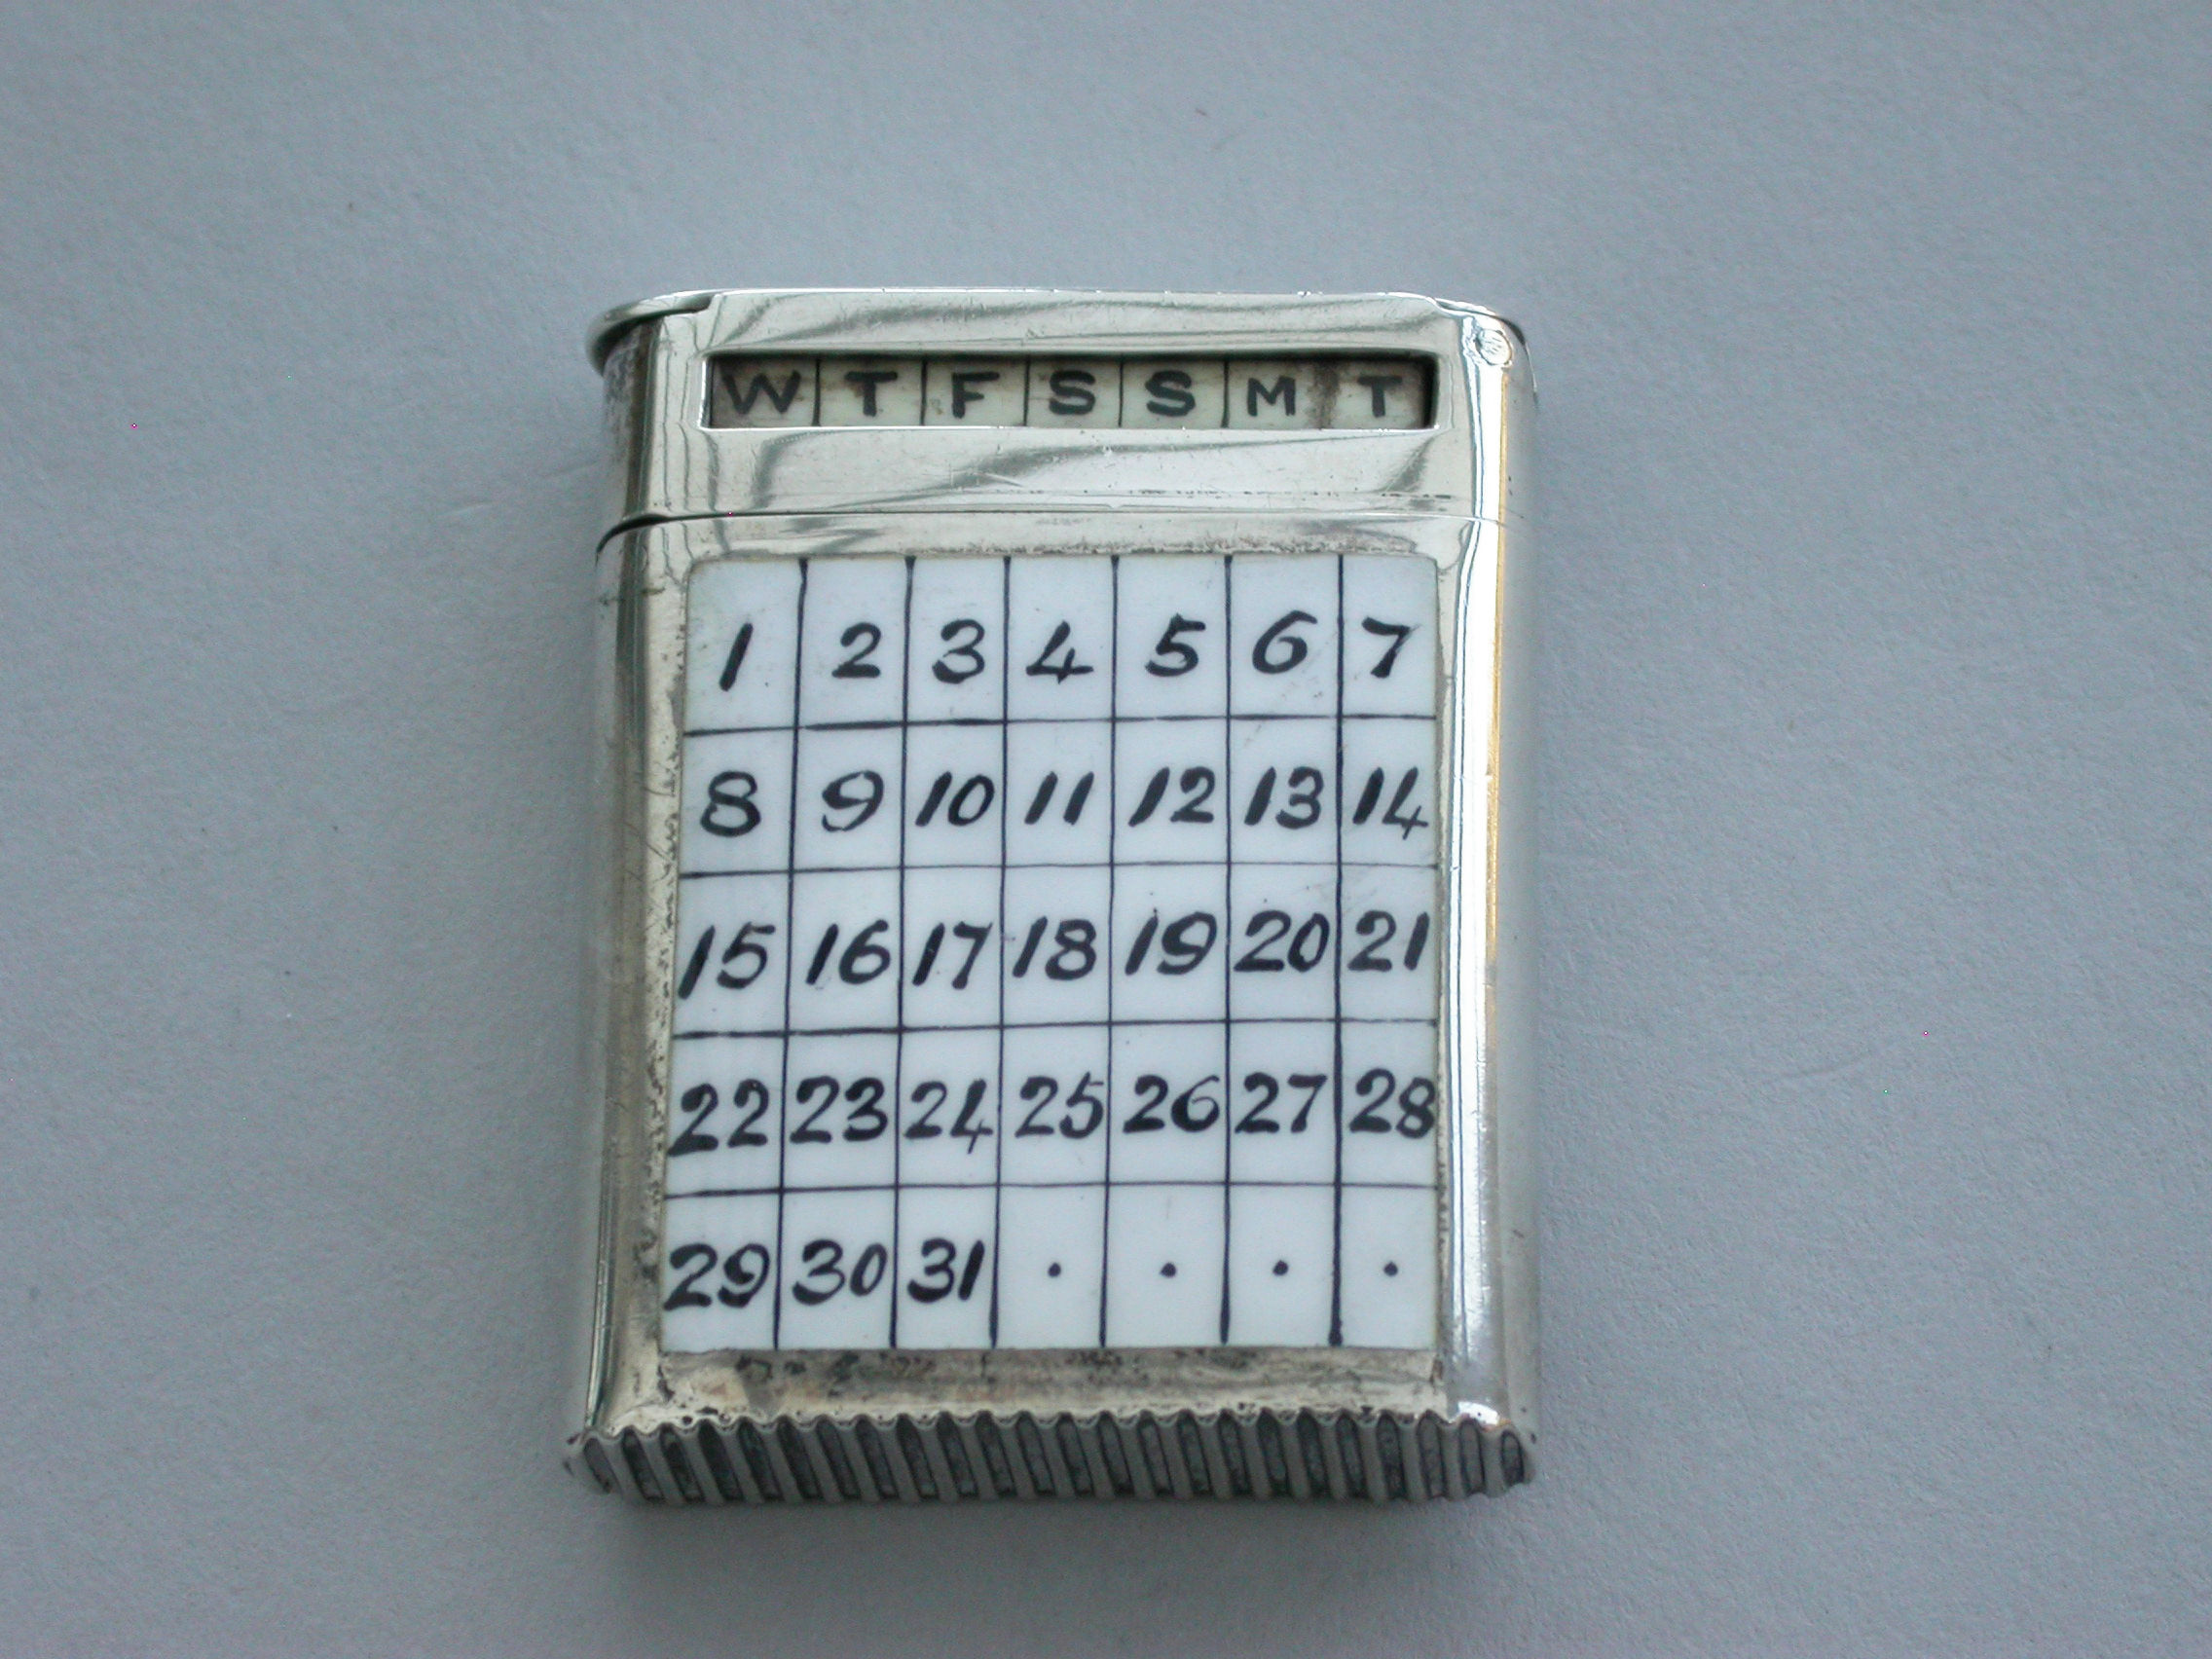 W T F S S M T
1 2 3 4 5 6 7
8 9 10 11 12 13 14
15 16 17 18 19 20 21
22 23 24 25 26 27 28
29 30 31 · · · ·